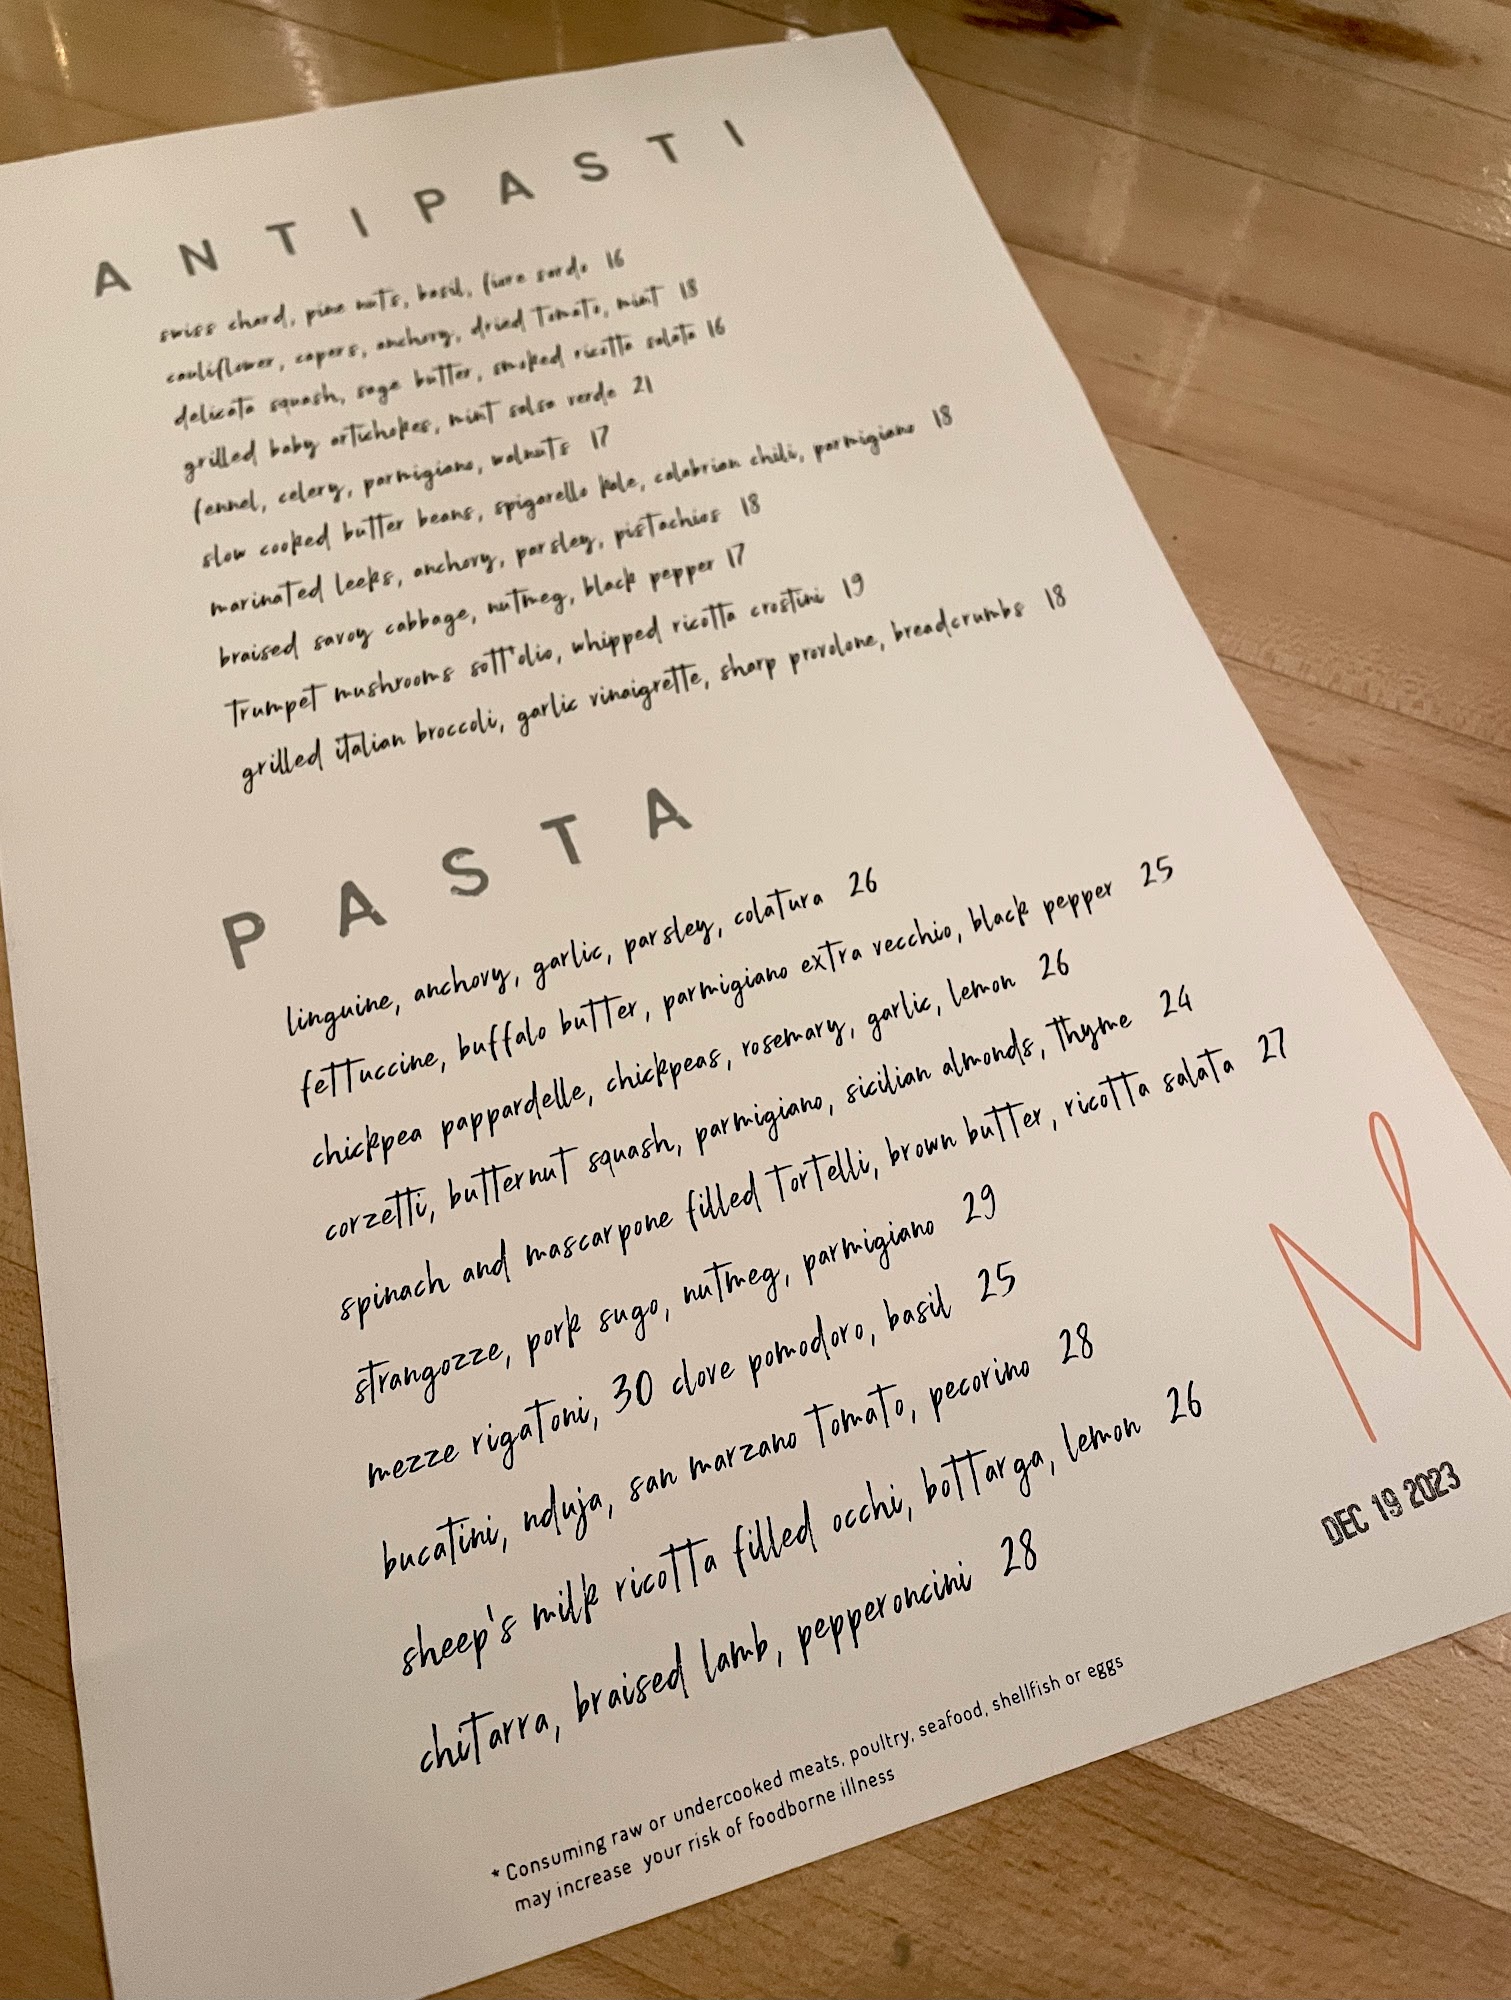 ANTIPASTI
swiss chard, pine nuts, basil, fiore sardo 16
cauliflower, capers, anchovy, dried tomato, mint 18
delicata squash, sage butter, smoked ricotta salata 16
grilled baby artichokes, mint salsa verde 21
fennel, celery, parmigiano, walnuts 17
slow cooked butter beans, spigarello kale, calabrian chili, parmigiano 18
marinated leeks, anchovy, parsley, pistachios 18
braised savoy cabbage, nutmeg, black pepper 17
trumpet mushrooms sott'olio, whipped ricotta crostini 19
grilled italian broccoli, garlic vinaigrette, sharp provolone, breadcrumbs 18
PASTA
linguine, anchovy, garlic, parsley, colatura 26
fettuccine, buffalo butter, parmigiano extra vecchio, black pepper 25
chickpea pappardelle, chickpeas, rosemary, garlic, lemon 26
corzetti, butternut squash, parmigiano, sicilian almonds, thyme 24
spinach and mascarpone filled tortelli, brown butter, ricotta salata 27
strangozze, pork sugo, nutmeg, parmigiano 29
mezze rigatoni, 30 clove pomodoro, basil 25
bucatini, nduja, san marzano tomato, pecorino 28
sheep's milk ricotta filled occhi, bottarga, lemon 26
chitarra, braised lamb, pepperoncini 28
M
DEC 19 2023
* Consuming raw or undercooked meats, poultry, seafood, shellfish or eggs
may increase your risk of foodborne illness